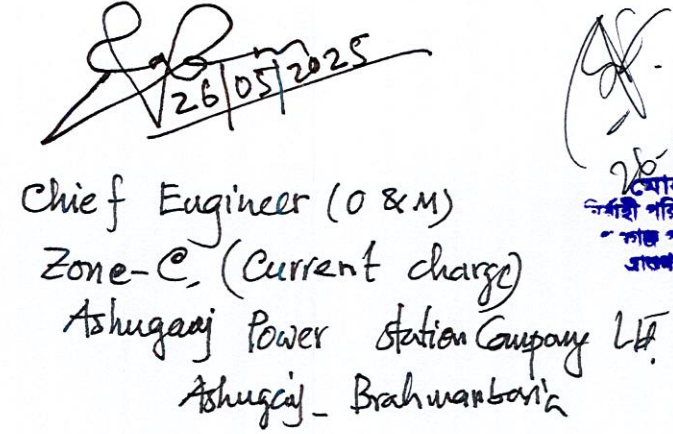 26/05/2025
Chief Engineer (O & M)
Zone-C, (Current charge)
Ashuganj Power station Company Ltd.
Ashuganj - Brahmanbaria